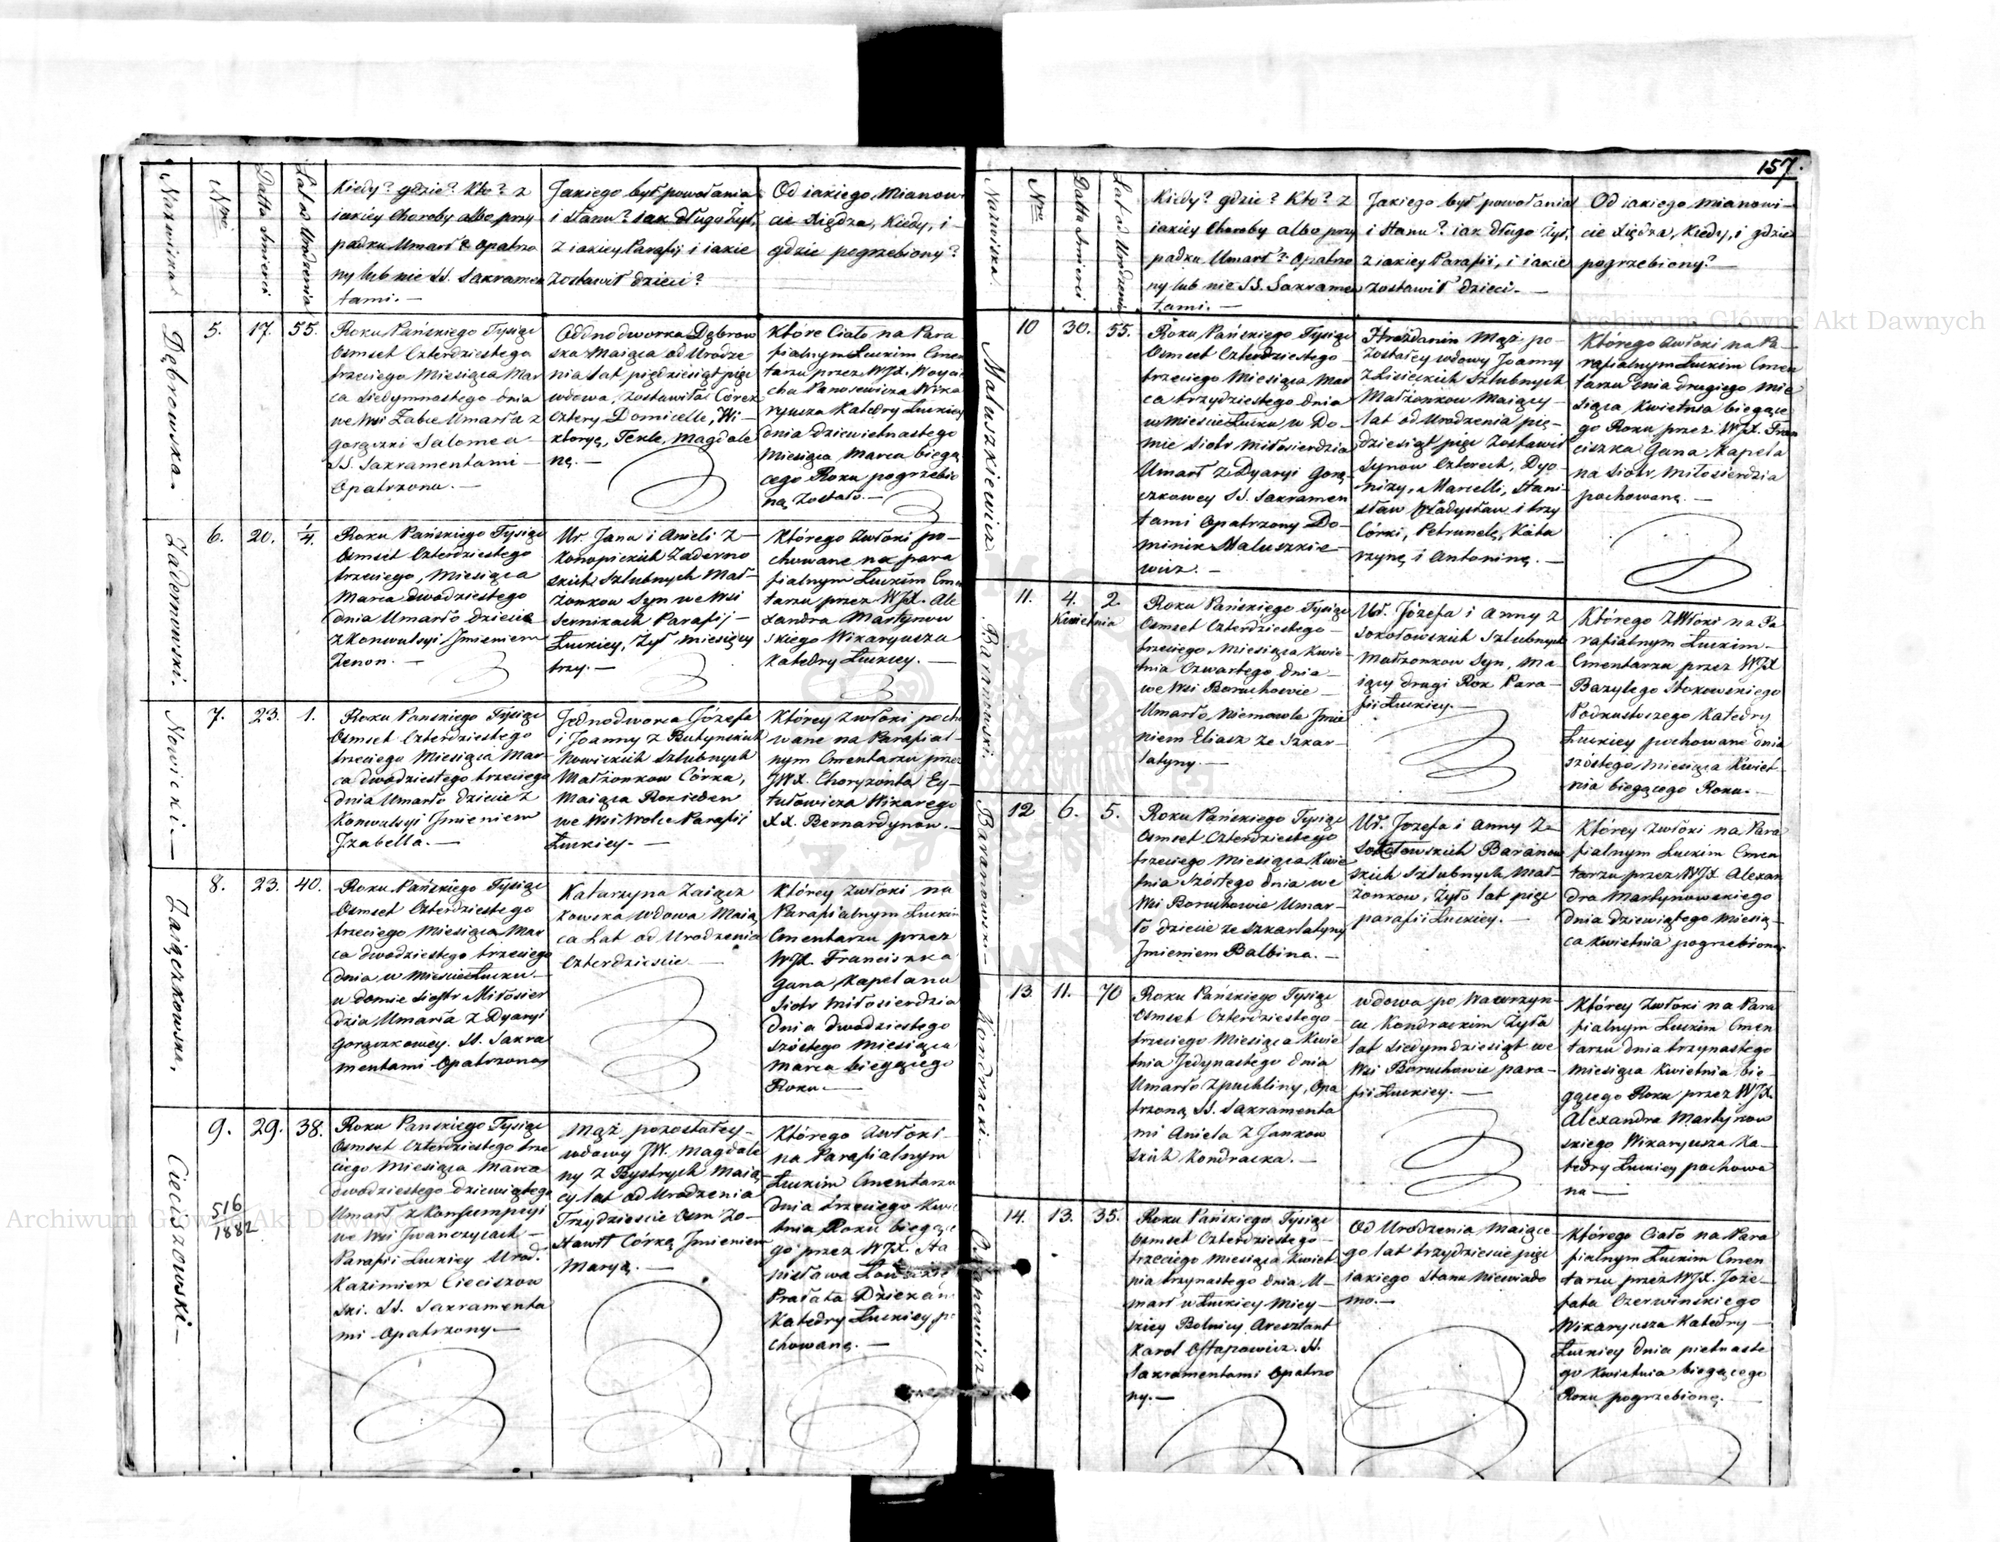 157.
Nazwiska
Nro
Datta Śmierci
Lat od Urodzenia
Kiedy? gdzie? Kto? z
iakiey Choroby albo przy
padku Umarł? Opatrzo
ny lub nie SS. Sakramen
tami. —
Jakiego był powołania
i stanu? iak długo żył,
z iakiey Parafij i iakie
zostawił dzieci?
Od iakiego, Mianowi
cie Xiędza, Kiedy, i —
gdzie pogrzebiony?
Dąbrowska.
5.
17.
55.
Roku Pańskiego Tysiąc
Osmset Czterdziestego
trzeciego Miesiąca Mar
ca Siedymnastego dnia
we Wsi Zabce Umarła z
gorączki Salomea
SS. Sakramentami —
Opatrzona. —
Oddnodworka Dębrow
ska Maiąca od Urodze
nia lat pięździesiąt pięć
wdowa, zostawiła Córek
Cztery Domicelle, Wi—
ktoryę, Teklę, Magdale
nę. —
Które Ciało na Para
fialnym Łuckim Cmen
tarzu przez WJX. Woycie
cha Panasewicza Wika
ryusza Katedry Łuckiey
dnia dziewietnastego
Miesiąca Marca biegą
cego Roku pogrzebio
ną zostało. —
Zadernowski.
6.
20.
1/4.
Roku Pańskiego Tysiąc
Osmset Czterdziestego
trzeciego, Miesiąca
Marca dwódziestego
dnia Umarło dziecie
z Konwulsyi Jmieniem
Zenon. —
Ur. Jana i Anieli z —
Konopickich Zaderno
skich Szlubnych Mał—
żonkow Syn we Wsi
Sernikach Parafij —
Łuckiey, żył miesięcy
trzy. —
Którego zwłoki po—
chowane na para
fialnym Łuckim Cmen
tarzu przez WJX. Ale
xandra Martynow
skiego Wikaryusza
Katedry Łuckiey. —
Nowicki. —
7.
23.
1.
Roku Pańskiego Tysiąc
Osmset Czterdziestego
trzeciego Miesiąca Mar
ca dwódziestego trzeciego
dnia Umarło dziecie z
Konwulsyi Jmieniem
Jzabella. —
Jednodworca Józefa
i Joanny z Butynskich
Nowickich Szlubnych
Małżonkow Córka,
Maiąca Rok ieden
we Wsi Wolce Parafij
Łuckiey. —
Którey zwłoki pocho
wane na Parafial—
nym Cmentarzu przez
JWX. Choryzonta Ey—
tułowicza Wikarego
XX. Bernardynow. —
Zaiączkowska.
8.
23.
40.
Roku Pańskiego Tysiąc
Osmset Czterdziestego
trzeciego Miesiąca Mar
ca dwódziestego trzeciego
dnia w Mieście Łucku —
w domie Siostr Miłosier
dzia Umarła z Dyaryi
Gorączkowey. SS. Sakra
mentami Opatrzona
Katarzyna Zaiącz
kowska wdowa Maią
ca Lat od Urodzenia
Czterdziescie —
Którey zwłoki na
Parafialnym Łuckim
Cmentarzu przez
WJX. Franciszka
Gana Kapelana
Siotr Miłosierdzia
dnia dwódziestego
szóstego Miesiąca
Marca biegącego
Roku —
Cieciszowski —
9.
29.
38.
516
1882
Roku Pańskiego Tysiąc
Osmset Czterdziestego trze
ciego Miesiąca Marca
dwódziestego dziewiątego
Umarł z Konsumpcyi
we Wsi Jwanczycach —
Parafii Łuckiey Urod.
Kazimierz Cieciszow
ski. SS. Sakramenta
mi Opatrzony —
Mąż pozostałey —
wdowy JW. Magdale
ny z Bystrych Maią
cy lat od Urodzenia
Trzydziescie Osm zo—
stawił Córkę Jmieniem
Maryą. —
Którego zwłoki —
na Parafialnym
Łuckim Cmentarzu
dnia trzeciego Kwie
tnia Roku biegące
go przez WJX. Sta
nisława
Prałata Dziekan
Katedry Łuckiey po
chowane. —
Nazwiska.
Nro
Datta Śmierci
Lat od Urodzenia
Kiedy? gdzie? Kto? z
iakiey Choroby albo przy
padku Umarł? Opatrzo
ny lub nie SS. Sakramen
tami. —
Jakiego był powołania
i Stanu? iak długo żył,
z iakiey Parafii, i iakie
zostawił dzieci. —
Od iakiego Mianowi—
cie Xiędza, Kiedy, i gdzie
pogrzebiony? —
Maluszkiewicz
10
30.
55.
Roku Pańskiego Tysiąc
Osmset Czterdziestego
trzeciego Miesiąca Mar
ca trzydziestego dnia
w Mieście Łucku w Do—
mie Siotr Miłosierdzia
Umarł z Dyaryi Gorą
czkowey SS. Sakramen
tami Opatrzony Do—
minik Maluszkie—
wicz. —
Hrażdanin Mąż po—
zostałey wdowy Joanny
z Lisieckich Szlubnych
Małżonkow Maiący —
lat od Urodzenia pię—
dziesiąt pięć zostawił
Synow Czterech, Dyo—
nizy, Marcelli, Stani
sław Władysław i trzy
Córki, Petrunelę, Kata
rzynę i Antoninę. —
Którego zwłoki na Pa—
rafialnym Łuckim Cmen
tarzu dnia drugiego Mie
siąca Kwietnia biegące
go Roku przez WJX. Fran
ciszka Gana, Kapela
na Siotr Miłosierdzia
pochowane. —
Baranowski.
11.
4.
Kwietnia
2.
Roku Pańskiego Tysiąc
Osmset Czterdziestego —
trzeciego, Miesiąca Kwie—
tnia Czwartego dnia —
we Wsi Boruchowie —
Umarło Niemowle Jmie
niem Eliasz ze Szkar—
latyny. —
Ur. Józefa i Anny z
Sokołowskich Szlubnych
Małżonkow Syn, Ma—
iący drugi Rok Para—
fii Łuckiey. —
Którego zwłoki na Pa
rafialnym Łuckim —
Cmentarzu przez WJX
Bazylego Stokowskiego
Podkustoszego Katedry
Łuckiey pochowane dnia
szóstego Miesiąca Kwiet—
nia biegącego Roku. —
Baranowski —
12
6.
5.
Roku Pańskiego Tysiąc
Osmset Czterdziestego
trzeciego Miesiąca Kwie
tnia Szóstego dnia we
Wsi Boruchowie Umar—
ło dziecie ze szkarlatyny
Jmieniem Balbina. —
Ur. Jozefa i Anny ze
Sokołowskich Baranow
skich Szlubnych Mał—
żonkow, żyło lat pięć
parafii Łuckiey. —
Którey zwłoki na Para
fialnym Łuckim Cmen
tarzu przez WJX Alexan
dra Martynowskiego
dnia dziewiątego Miesią—
ca Kwietnia pogrzebione
Kondracki —
13
11.
70
Roku Pańskiego Tysiąc
Osmset Czterdziestego —
trzeciego Miesiąca Kwie
tnia Jedynastego dnia
Umarło z puchliny, Opa
trzoną SS. Sakramenta
mi Aniela z Jankow
skich Kondracka. —
wdowa po Wawrzyn—
cu Kondrackim żyła
lat siedymdziesiąt we
Wsi Boruchowie para—
fii Łuckiey. —
Którey zwłoki na Para
fialnym Łuckim Cmen
tarzu dnia trzynastego
Miesiąca Kwietnia bie—
gącego Roku przez WJX.
Alexandra Martynow
skiego Wikaryusza Ka—
tedry Łuckiey pochowa
na —
14.
13.
35.
Roku Pańskiego Tysiąc
Osmset Czterdziestego —
trzeciego Miesiąca Kwiet
nia trzynastego dnia, U—
marł w Łuckiey Miey—
skiey Bolnicy Aresztant
Karol Ostapowicz. SS.
Sakramentami Opatrzo
ny. —
Od Urodzenia Maiące—
go lat trzydziescie pięć
iakiego Stanu Niewiado
mo. —
Którego Ciało na Para
fialnym Łuckim Cmen
tarzu przez WJX. Joze—
fata Czerwinskiego
Wikaryusza Katedry —
Łuckiey dnia pietnaste
go Kwietnia biegącego
Roku pogrzebioną.
Archiwum Główne Akt Dawnych
Archiwum Główne Akt Dawnych